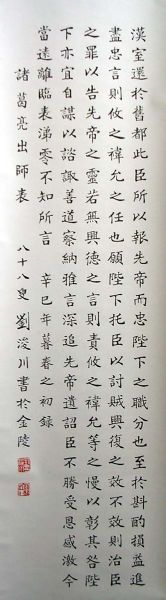 漢室還於舊都此臣所以報先帝而忠陛下之職分也至於斟酌損益進
盡忠言則攸之禕允之任也願陛下托臣以討賊興復之效不效則治臣
之罪以告先帝之靈若無興德之言則責攸之禕允等之慢以彰其咎陛
下亦宜自謀以諮諏善道察納雅言深追先帝遺詔臣不勝受恩感激今
當遠離臨表涕零不知所言 辛巳年暮春之初錄
諸葛亮出師表 八十八叟 劉浚川書於金陵